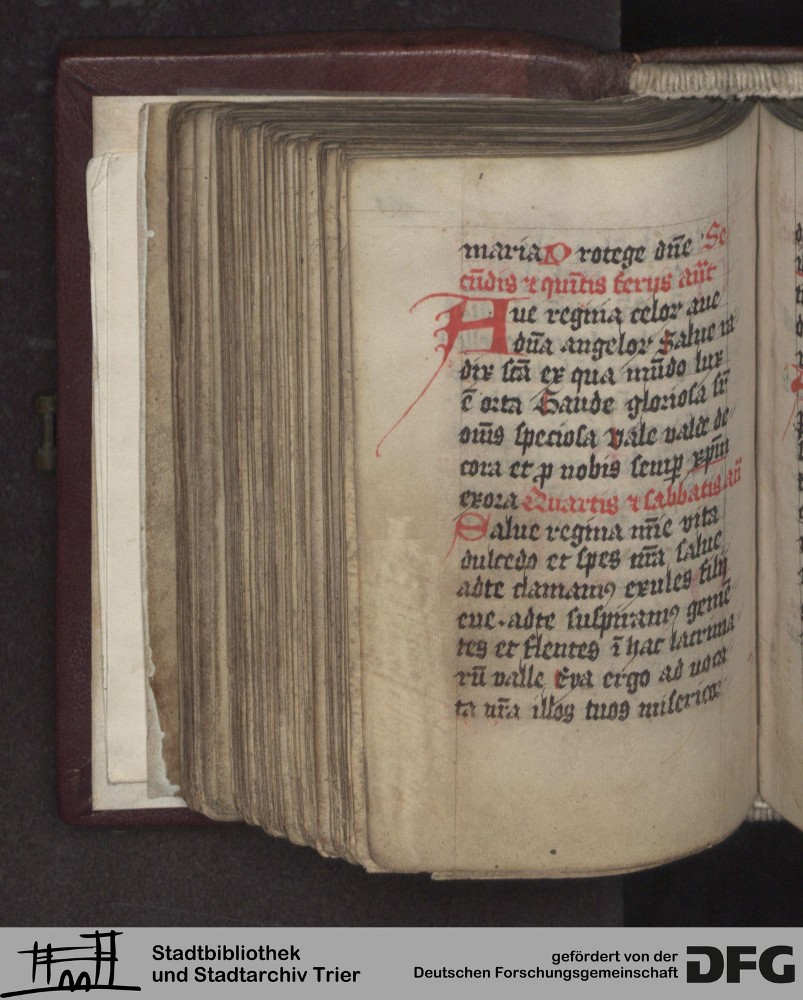 maria P rotege dn̄e Se
cūdis ⁊ quītis ferijs an̄t
Aue regina celoꝝ aue
dn̄a angeloꝝ Salue ra
dix scā ex qua mūdo lux
ē orta Gaude gloriosa sr̄
om̄s speciosa vale valde de
cora et ꝓ nobis semꝑ xp̄m
exora Quartis ⁊ sabbatis an̄
Salue regina mīe vita
dulcedo et spes nr̄a salue
adte clamamꝰ exules filij
eue . adte suspiramꝰ gemē
tes et flentes ī hac lacrima
rū valle Eya ergo ad uoca
ta nr̄a illos tuos misericor
Stadtbibliothek
und Stadtarchiv Trier
gefördert von der
Deutschen Forschungsgemeinschaft
DFG